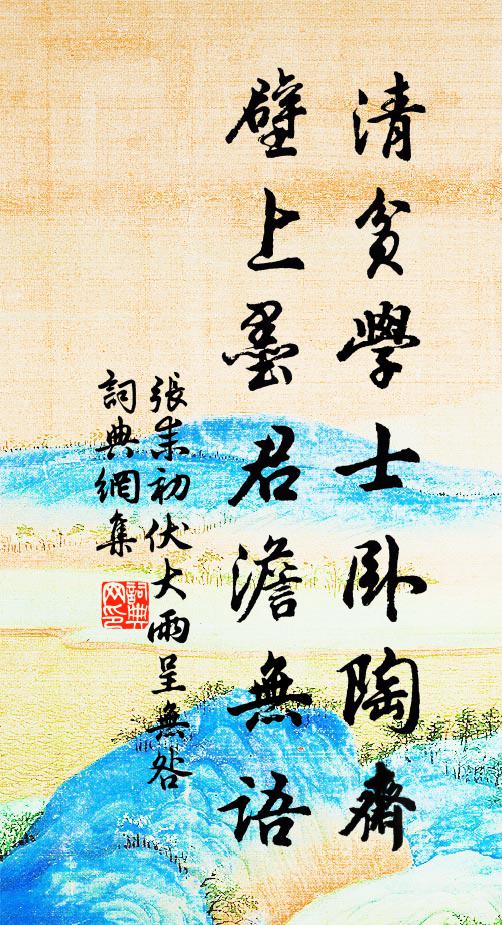 清貧學士臥陶齋
壁上墨君澹無語
張耒初伏大雨呈無咎
詞典網集
詞典